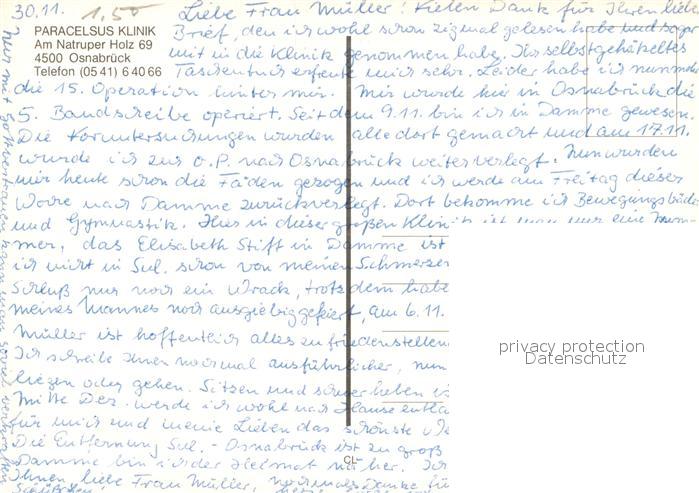 30.11. 1,50
Liebe Frau Müller! Vielen Dank für Ihren liebe
Brief, den ich wohl schon zigmal gelesen habe und sogar
PARACELSUS KLINIK
Am Natruper Holz 69
4500 Osnabrück
Telefon (05 41) 6 40 66
mit in die Klinik genommen habe. Ihr selbstgehäkeltes
Taschentuch erfreute mich sehr. Leider habe ich nunmehr
die 15. Operation hinter mir. Mir wurde hier in Osnabrück die
5. Bandscheibe operiert. Seit dem 9.11. bin ich in Damme gewesen.
Die Voruntersuchungen wurden alle dort gemacht und am 17.11.
wurde ich zur O.P. nach Osnabrück weiterverlegt. Nun wurden
mir heute schon die Fäden gezogen und ich werde am Freitag dieser
Woche nach Damme zurückverlegt. Dort bekomme ich Bewegungsbäder
und Gymnastik. Hier in dieser großen Klinik ist man nur eine Num-
mer, das Elisabeth Stift in Damme ist
ich nicht in Sul. schon von meinen Schmerzen
Schluß nur noch ein Wrack, trotzdem habe
meines Mannes noch ausgiebig gefeiert, am 6.11.
Müller ist hoffentlich alles zufriedenstellend
Ich schreibe Ihnen nochmal ausführlicher, nun
liegen oder gehen. Sitzen und schwer heben
Mitte Dez. werde ich wohl nach Hause entla
für mich und meine Lieben das schönste
Die Entfernung Sul. - Osnabrück ist zu groß
Damme bin ich der Heimat näher. Ich
CL
Ihnen, liebe Frau Müller, nochmals Danke für
nur mit Gottvertrauen kann man soviel verkraften
privacy protection
Datenschutz